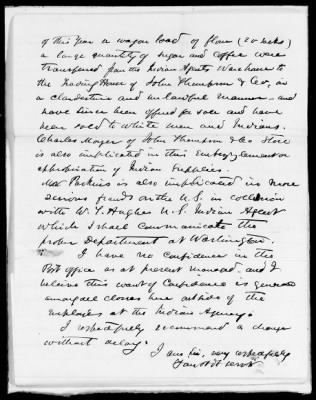 of this Year a wagon load of flour (20 sacks)
a large quantity of sugar and coffee were
transfered from the Indian Agents Warehouse to
the Trading House of John Thompson & Co, in
a clandestine and unlawful manner and
have since been offered for sale and have
been sold to White men and Indians.
Charles Moyer of John Thompson & Co Store
is also implicated in this embezzlement or
appropriation of Indian Supplies.
Parkins is also implicated in more
serious frauds on the U.S. in collusion
with W. T. Hughes U.S. Indian Agent
which I shall communicate the
proper Department at Washington.
I have no confidence in the
Post office as at present managed, and I
believe this want of Confidence is general
amongst all classes here outside of the
employees at the Indian Agency.
I respectfully recommend a change
without delay.
I am Sir, very respectfully
Your Obt servt